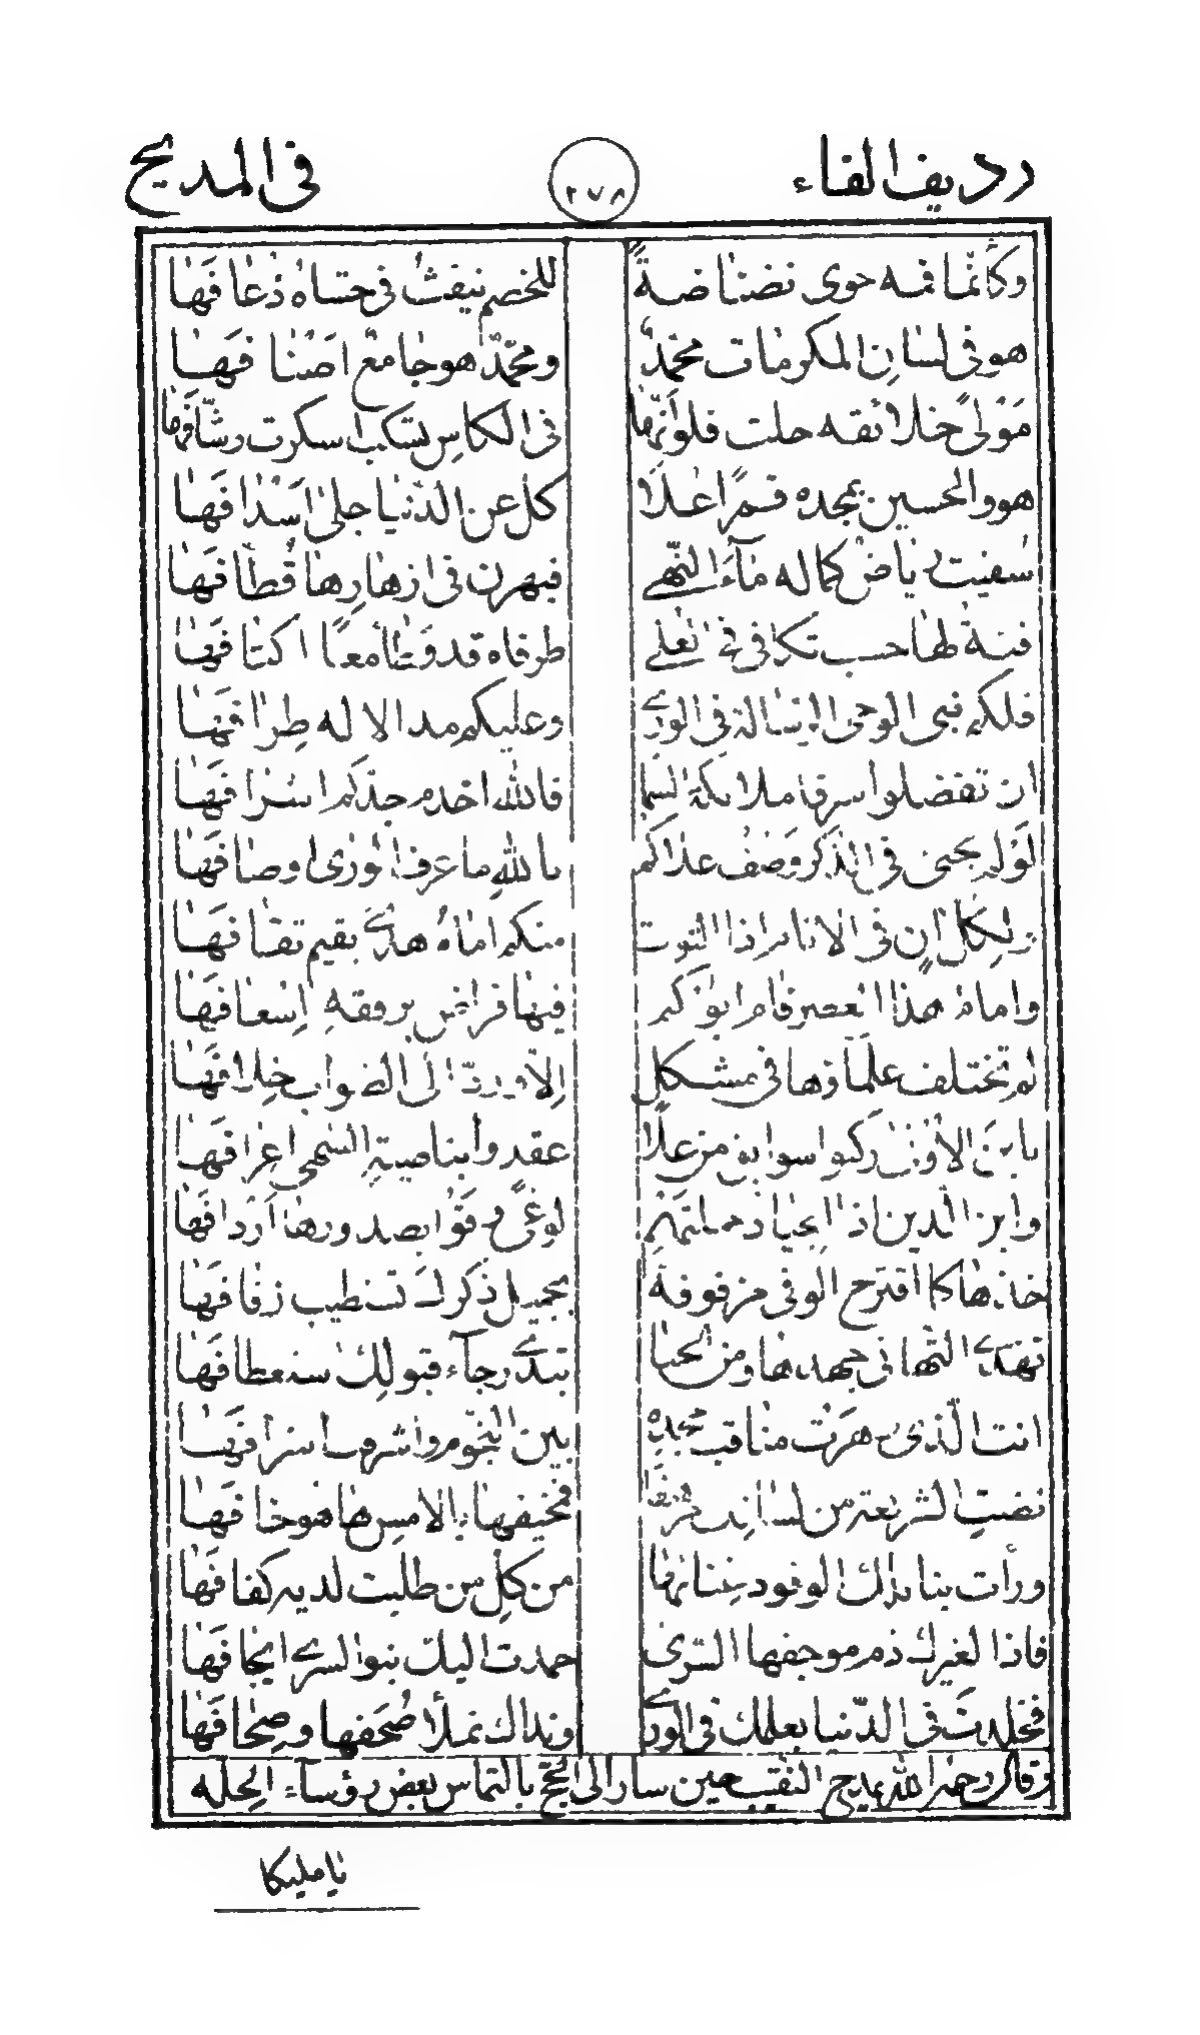 رديف الفاء ٢٧٨ فى المديح
وكأنما فمه حوى نضناضةً للخصم ينفث فى حشاه ذعافها
هو فى لسان المكرمات محمدٌ ومحمدٌ هو جامع اصنافها
مولىً خلائقه حلت فلو انها فى الكاس تسكب اسكرت رشافها
هو والحسين بمجده قسمًا علا كل عن الدنيا جلى اسدافها
سقيت رياض كماله ماء النهى فبهرن فى ازهارها قطافها
فئة لها حسب تكافى فى العلى طرفاه قد وطأ معًا اكتافها
فلكم نبى الوحى الرسالة فى الورى وعليكم مد الاله طرافها
ان تفضلوا شرفا ملائكة السما فالله اخدم جدكم اشرافها
لو لم يجئ فى الذكر وصف علاكم بالله ما عرف الورى اوصافها
ولكل ان فى الانام اذا التوت منكم امام هدى يقيم ثقافها
وامام هذا العصر قام ابوكم فيها فرائض برفقه اسعافها
لم تختلف علماؤها فى مشكل الا ورد الى الصواب خلافها
يا بن الاولى ركبوا سوابق من علا عقدوا بناصية السهى اعرافها
وابن الذين اذا الجياد حملتهم لوغى وقوا بصدورها اردافها
خذها كما اقترح الوفى مزفوفة بجميل ذكرك تستطيب زفافها
تهدى التهانى جهدها ومن الحيا تبدى رجاء قبولك استعطافها
انت الذى زهرت مناقب مجده بين النجوم واشرفت اشرافها
نضت الشريعة من لسانك مرهفا فمخيفها بالامس ها هو خافها
ورأت بنانداك الوفود بنانها من كل من طلبت لديه كفافها
فاذا لغيرك ذم موجفها السرى حمدت اليك بنو السرى ايجافها
فخلدت فى الدنيا بعلمك فى الورى ونداك تملأ صحفها وصحافها
وقال رحمه الله يمدح النقيب حين سار الى الحج بالتماس بعض رؤساء الحله
يا مليكا